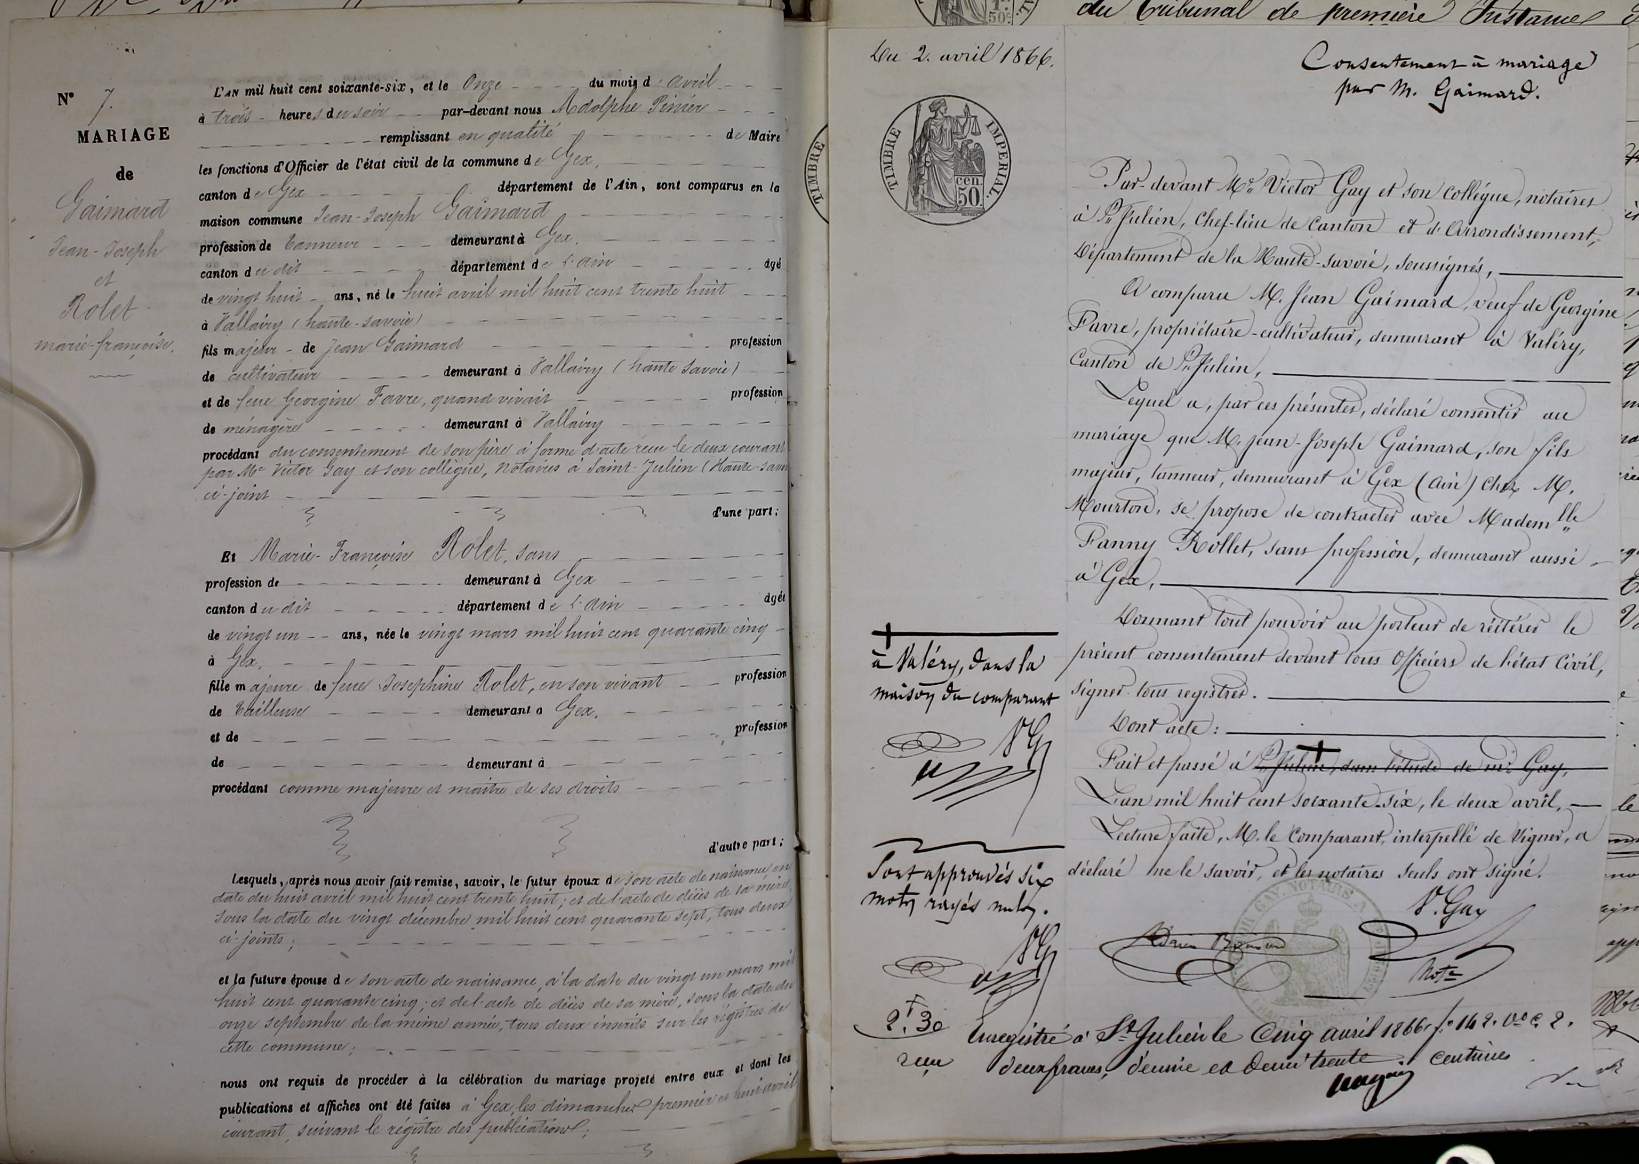 N° 7.
MARIAGE
de
Gaimard
Jean-Joseph
et
Rolet
marie-françoise.
L'AN mil huit cent soixante-six, et le Onze du mois d'avril
à trois heures du soir par-devant nous Adolphe Pinier
remplissant en qualité de Maire
les fonctions d'Officier de l'état civil de la commune de Gex,
canton de Gex département de l'Ain, sont comparus en la
maison commune Jean-Joseph Gaimard
profession de tanneur demeurant à Gex.
canton du dit département de l'Ain âgé
de vingt huit ans, né le huit avril mil huit cent trente huit
à Vallairy (haute-savoie)
fils majeur de Jean Gaimard profession
de cultivateur demeurant à Vallairy (haute Savoie)
et de feue Georgine Favre, quand vivait profession
de ménagère demeurant à Vallairy
procédant du consentement de son père à forme d'acte reçu le deux courant
par Me Victor Gay et son collègue, notaires à Saint-Julien (Haute-Savoie
ci-joint
d'une part;
Et Marie-Françoise Rolet, sans
profession de demeurant à Gex
canton du dit département de l'Ain âgée
de vingt un ans, née le vingt mars mil huit cent quarante cinq
à Gex.
fille majeure de feue Josephine Rolet, en son vivant profession
de tailleuse demeurant à Gex.
et de profession
de demeurant à
procédant comme majeure et maître de ses droits
d'autre part;
Lesquels, après nous avoir fait remise, savoir, le futur époux de son acte de naissance en
date du huit avril mil huit cent trente huit; et de l'acte de décès de sa mère,
sous la date du vingt décembre mil huit cent quarante sept, tous deux
ci-joints;
et la future épouse de son acte de naissance, à la date du vingt un mars mil
huit cent quarante cinq; et de l'acte de décès de sa mère, sous la date du
onze septembre de la même année, tous deux inscrits sur les régistres de
cette commune;
nous ont requis de procéder à la célébration du mariage projeté entre eux et dont les
publications et affiches ont été faites à Gex, les dimanches premier et huit avril
courant, suivant le régistre des publications;
du Tribunal de première Instance
Du 2. avril 1866.
TIMBRE IMPERIAL
50 cen
TIMBRE
Consentement à mariage
par M. Gaimard.
Par-devant Me Victor Gay et son collègue, notaires
à St Julien, chef-lieu de Canton et d'Arrondissement,
Département de la Haute-savoie, soussignés,
A comparu M. Jean Gaimard, veuf de Georgine
Favre, propriétaire-cultivateur, demeurant à Valéry,
Canton de St Julien,
Lequel a, par ces présentes, déclaré consentir au
mariage que M. jean-Joseph Gaimard, son fils
majeur, tanneur, demeurant à Gex (Ain) chez M.
Mourton, se propose de contracter avec Mademlle
Fanny Rollet, sans profession, demeurant aussi
à Gex,
Donnant tout pouvoir au porteur de réitérer le
présent consentement devant tous Officiers de l'état Civil,
Signer tous registres.
Dont acte:
Fait et passé à St Julien, dans l'étude de me Gay,
L'an mil huit cent soixante-six, le deux avril,
Lecture faite, M. le Comparant, interpellé de Signer, a
déclaré ne le savoir, et les notaires Seuls ont signé.
à Valéry, dans la
maison du comparant
VG
Sont approuvés six
mots rayés nuls.
VG
V. Gay
Note
2f. 30
reçu
Enregistré à St Julien le Cinq avril 1866 fo 142. Vo c. 2.
deux francs, décime et demi trente centimes